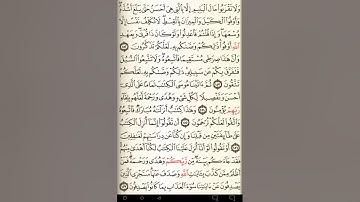 وَلَا تَقْرَبُوا۟ مَالَ ٱلْيَتِيمِ إِلَّا بِٱلَّتِى هِىَ أَحْسَنُ حَتَّىٰ يَبْلُغَ أَشُدَّهُۥ
وَأَوْفُوا۟ ٱلْكَيْلَ وَٱلْمِيزَانَ بِٱلْقِسْطِ لَا نُكَلِّفُ نَفْسًا إِلَّا
وُسْعَهَا وَإِذَا قُلْتُمْ فَٱعْدِلُوا۟ وَلَوْ كَانَ ذَا قُرْبَىٰ وَبِعَهْدِ
ٱللَّهِ أَوْفُوا۟ ذَٰلِكُمْ وَصَّىٰكُم بِهِۦ لَعَلَّكُمْ تَذَكَّرُونَ ١٥٢
وَأَنَّ هَٰذَا صِرَٰطِى مُسْتَقِيمًا فَٱتَّبِعُوهُ وَلَا تَتَّبِعُوا۟ ٱلسُّبُلَ
فَتَفَرَّقَ بِكُمْ عَن سَبِيلِهِۦ ذَٰلِكُمْ وَصَّىٰكُم بِهِۦ لَعَلَّكُمْ
تَتَّقُونَ ١٥٣ ثُمَّ ءَاتَيْنَا مُوسَى ٱلْكِتَٰبَ تَمَامًا عَلَى ٱلَّذِىٓ
أَحْسَنَ وَتَفْصِيلًا لِّكُلِّ شَىْءٍ وَهُدًى وَرَحْمَةً لَّعَلَّهُم بِلِقَآءِ
رَبِّهِمْ يُؤْمِنُونَ ١٥٤ وَهَٰذَا كِتَٰبٌ أَنزَلْنَٰهُ مُبَارَكٌ فَٱتَّبِعُوهُ
وَٱتَّقُوا۟ لَعَلَّكُمْ تُرْحَمُونَ ١٥٥ أَن تَقُولُوٓا۟ إِنَّمَآ أُنزِلَ ٱلْكِتَٰبُ
عَلَىٰ طَآئِفَتَيْنِ مِن قَبْلِنَا وَإِن كُنَّا عَن دِرَاسَتِهِمْ لَغَٰفِلِينَ
١٥٦ أَوْ تَقُولُوا۟ لَوْ أَنَّآ أُنزِلَ عَلَيْنَا ٱلْكِتَٰبُ لَكُنَّآ أَهْدَىٰ مِنْهُمْ
فَقَدْ جَآءَكُم بَيِّنَةٌ مِّن رَّبِّكُمْ وَهُدًى وَرَحْمَةٌ فَمَنْ
أَظْلَمُ مِمَّن كَذَّبَ بِـَٔايَٰتِ ٱللَّهِ وَصَدَفَ عَنْهَا سَنَجْزِى ٱلَّذِينَ
يَصْدِفُونَ عَنْ ءَايَٰتِنَا سُوٓءَ ٱلْعَذَابِ بِمَا كَانُوا۟ يَصْدِفُونَ ١٥٧